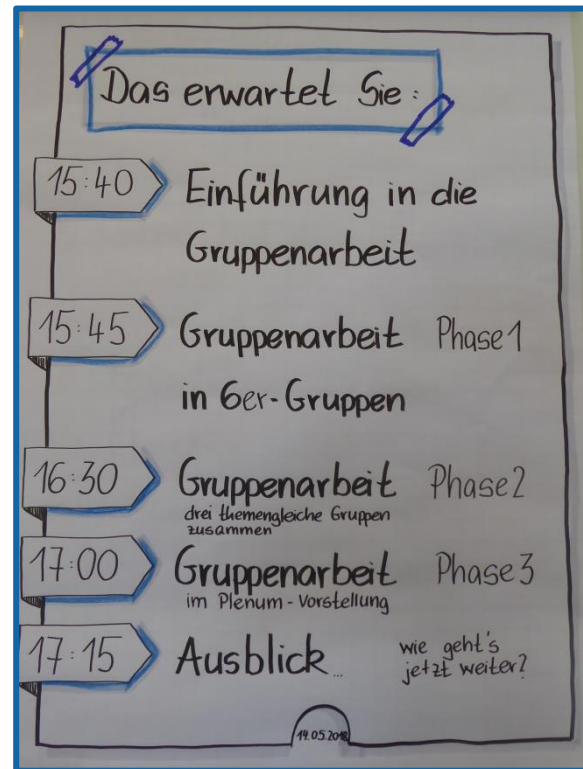 Das erwartet Sie:
15:40 Einführung in die
Gruppenarbeit
15:45 Gruppenarbeit Phase 1
in 6er-Gruppen
16:30 Gruppenarbeit Phase 2
drei themengleiche Gruppen
zusammen
17:00 Gruppenarbeit Phase 3
im Plenum - Vorstellung
17:15 Ausblick... wie geht's
jetzt weiter?
14.05.2018